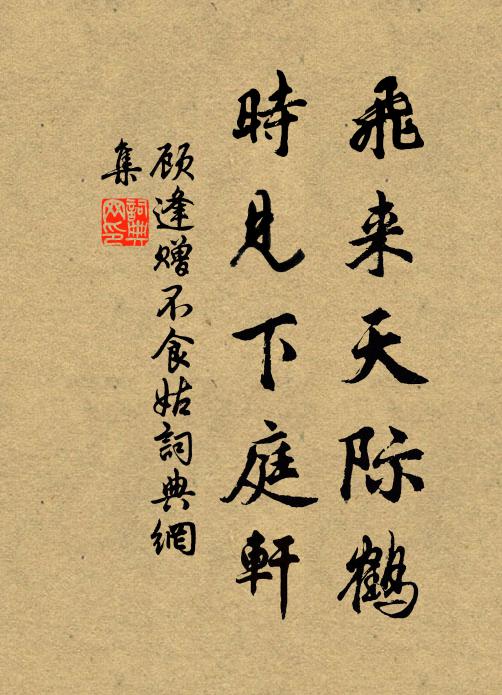 飛来天际鹤
時見下庭軒
顾逢赠不食姑詞典網
集
詞典
网印